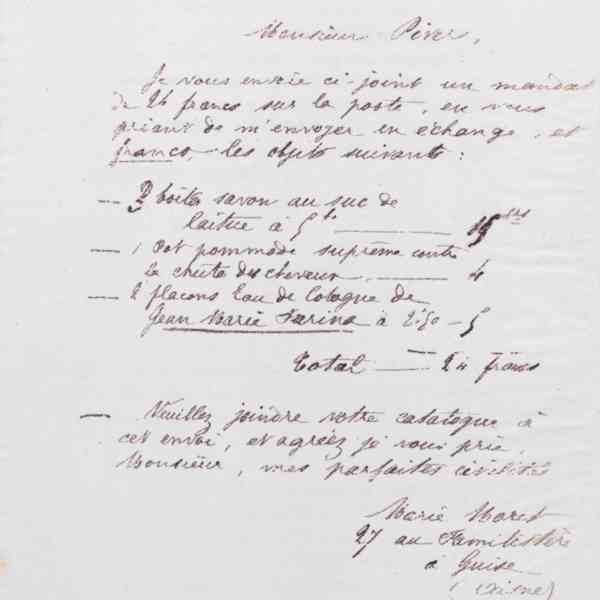 Monsieur Piver,
Je vous envoie ci-joint un mandat
de 24 francs sur la poste, en vous
priant de m'envoyer en échange, et
franco, les objets suivants :
— 3 boites savon au suc de
laitue à 5 — 15
— 1 Pot pommade suprême contre
la chute des cheveux, — 4
— 2 flacons Eau de Cologne de
Jean Marie Farina à 2.50 — 5
Total — 24 francs
— Veuillez joindre votre catalogue à
cet envoi, et agréez je vous prie,
Monsieur, mes parfaites civilités
Marie Moret
27 au Familistère
à Guise
(Aisne)